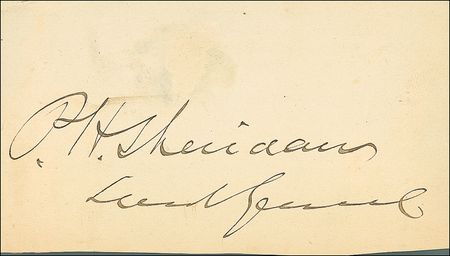 P. H. Sheridan
Lieut General